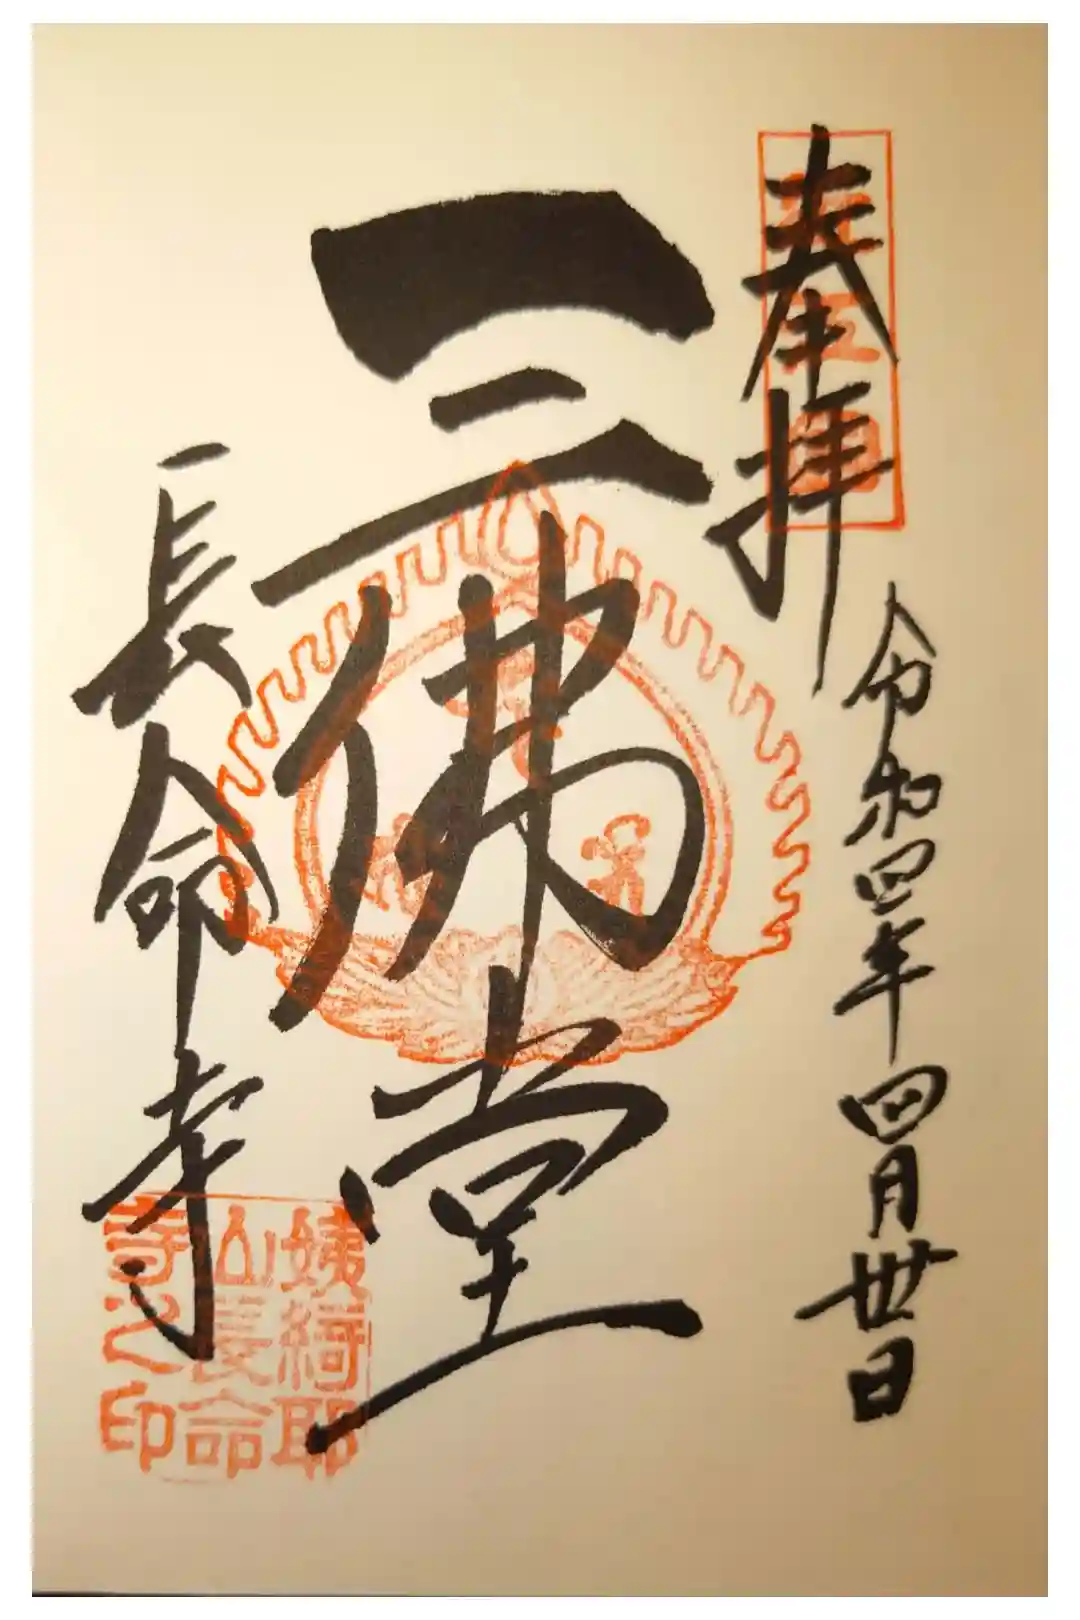 奉拝
令和四年四月丗日
三佛堂
長命寺
姨綺耶
山長命
寺之印